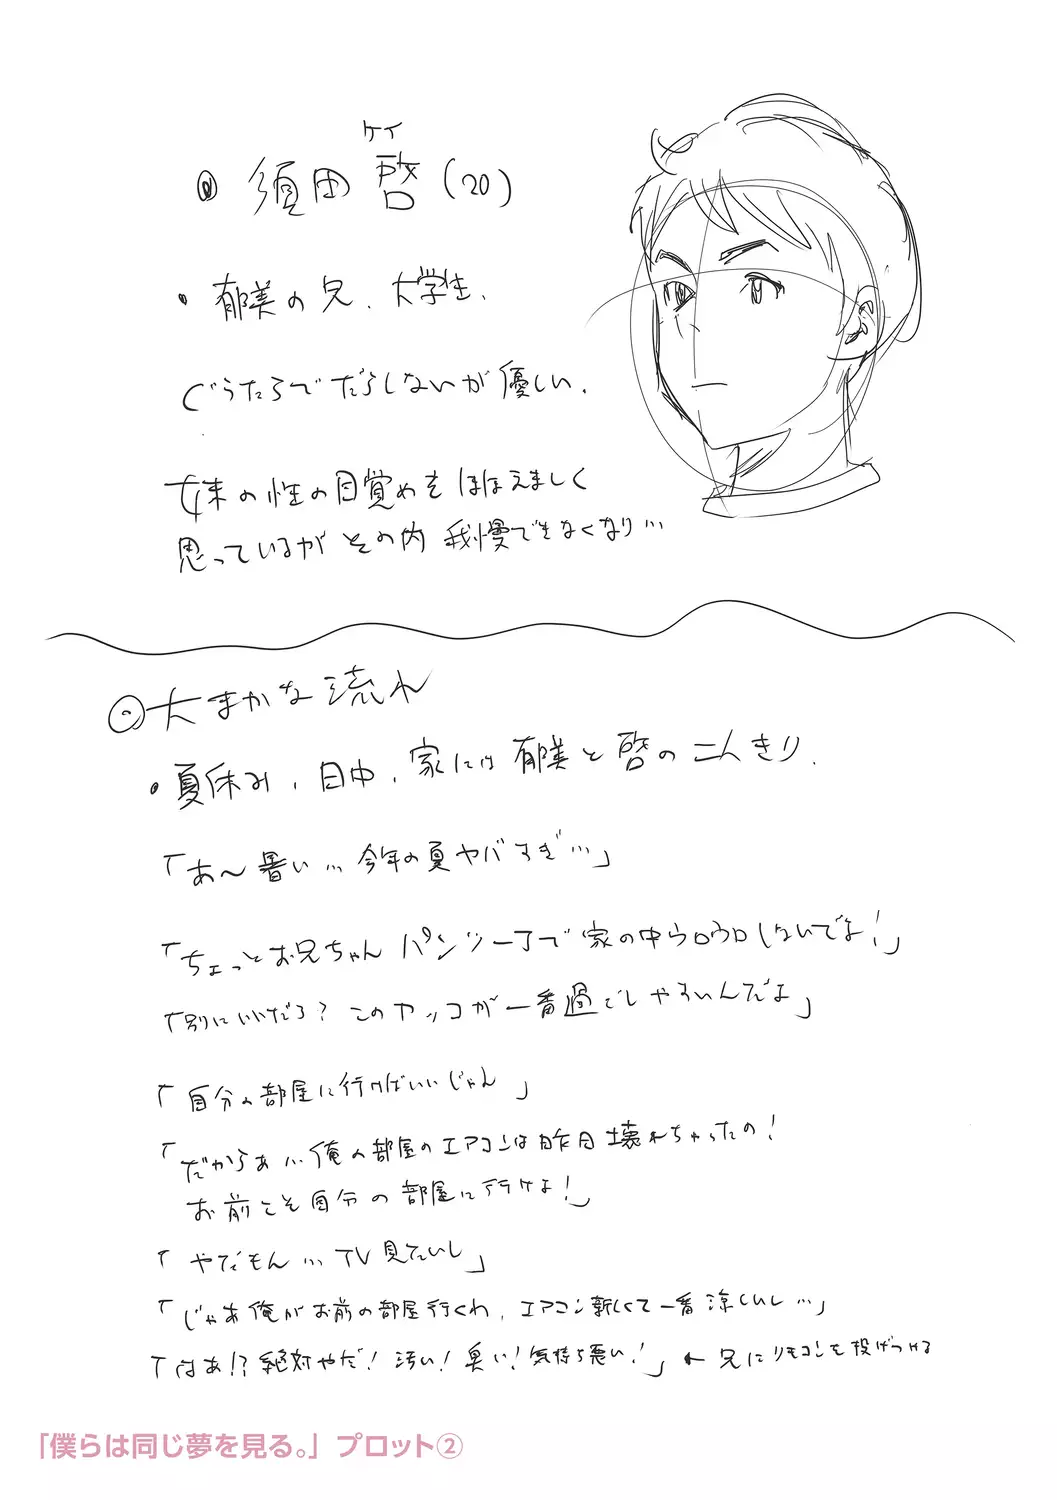 ケイ
須田 啓(20)
・郁美の兄、大学生、
ぐうたらでだらしないが優しい、
妹の性の目覚めをほほえましく
思っているがその内 我慢できなくなり…
◎大まかな流れ
・夏休み、日中、家には郁美と啓の二人きり、
「あ〜暑い…今年の夏ヤバすぎ…」
「ちょっとお兄ちゃん パンツ一丁で家の中ウロウロしないでよ!」
「別にいいだろ? このカッコが一番過ごしやすいんだよ」
「自分の部屋に行けばいいじゃん」
「だからぁ…俺の部屋のエアコンは昨日壊れちゃったの!
お前こそ自分の部屋に行けよ!」
「やだもん…TV見たいし」
「じゃあ俺がお前の部屋行くわ、エアコン新しくて一番涼しいし…」
「はあ!? 絶対やだ! 汚い! 臭い! 気持ち悪い!」← 兄にリモコンを投げつける
「僕らは同じ夢を見る。」プロット②